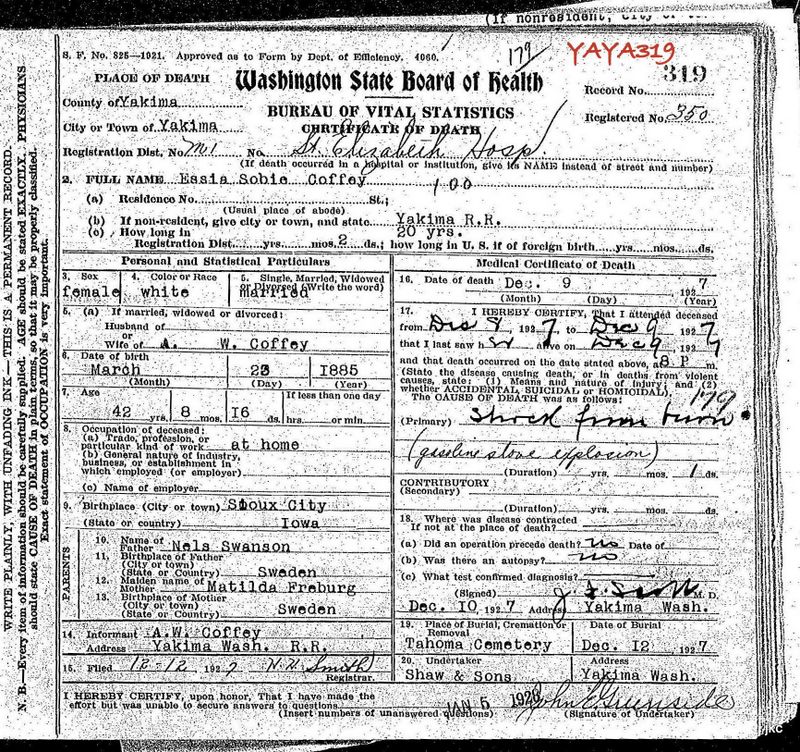 (If nonresident, city or
S. F. No. 825—1921. Approved as to Form by Dept. of Efficiency. 4060.
179
YAYA319
PLACE OF DEATH
Washington State Board of Health
Record No. 319
County of Yakima
BUREAU OF VITAL STATISTICS
Registered No. 350
City or Town of Yakima
CERTIFICATE OF DEATH
Registration Dist. No. M1 No. St. Elizabeth Hosp.
(If death occurred in a hospital or institution, give its NAME instead of street and number)
2. FULL NAME Essia Sobie Coffey
100
(a) Residence No. St.;
(Usual place of abode)
(b) If non-resident, give city or town, and state Yakima R.R.
(c) How long in 20 yrs.
Registration Dist. yrs. mos. 2 ds.; how long in U. S. if of foreign birth yrs. mos. ds.
Personal and Statistical Particulars
3. Sex 4. Color or Race 5. Single, Married, Widowed
or Divorced (Write the word)
female white married
5. (a) If married, widowed or divorced:
Husband of
or
Wife of A. W. Coffey
6. Date of birth
March 23 1885
(Month) (Day) (Year)
7. Age If less than one day
42 yrs. 8 mos. 16 ds. hrs. or min.
8. Occupation of deceased:
(a) Trade, profession, or
particular kind of work at home
(b) General nature of industry,
business, or establishment in
which employed (or employer)
(c) Name of employer
9. Birthplace (City or town) Sioux City
(State or country) Iowa
PARENTS
10. Name of
Father Nels Swanson
11. Birthplace of Father
(City or town)
(State or Country) Sweden
12. Maiden name of
Mother Matilda Freburg
13. Birthplace of Mother
(City or town)
(State or Country) Sweden
14. Informant A.W. Coffey
Address Yakima Wash. R.R.
15. Filed 12-12 1927 N. N. Smith
Registrar.
Medical Certificate of Death
16. Date of death Dec. 9 1927
(Month) (Day) (Year)
17. I HEREBY CERTIFY, That I attended deceased
from Dec 8, 1927, to Dec 9 1927
that I last saw h er alive on Dec 9, 1927
and that death occurred on the date stated above, at 8 P m.
(State the disease causing death, or in deaths from violent
causes, state: (1) Means and nature of injury; and (2)
whether ACCIDENTAL, SUICIDAL or HOMICIDAL).
The CAUSE OF DEATH was as follows: 179
(Primary) Shock from burn
(gasoline stove explosion)
(Duration) yrs. mos. 1 ds.
CONTRIBUTORY
(Secondary)
(Duration) yrs. mos. ds.
18. Where was disease contracted
If not at the place of death?
(a) Did an operation precede death? no Date of
(b) Was there an autopsy? no
(c) What test confirmed diagnosis?
(Signed) J. F. Scott M. D.
Dec. 10 1927 Address Yakima Wash.
19. Place of Burial, Cremation or Removal Date of Burial
Tahoma Cemetery Dec. 12 1927
20. Undertaker Address
Shaw & Sons Yakima Wash.
I HEREBY CERTIFY, upon honor, That I have made the
effort but was unable to secure answers to questions
(Insert numbers of unanswered questions)
JAN 5 1928
John C Greenside
(Signature of Undertaker)
WRITE PLAINLY, WITH UNFADING INK—THIS IS A PERMANENT RECORD.
N. B.—Every item of information should be carefully supplied. AGE should be stated EXACTLY. PHYSICIANS
should state CAUSE OF DEATH in plain terms, so that it may be properly classified.
Exact statement of OCCUPATION is very important.
jkc